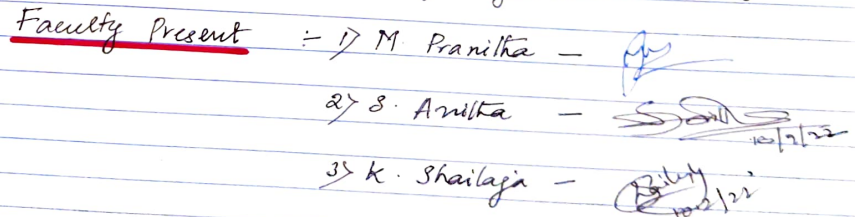 Faculty Present :- 1) M. Pranitha -
2) S. Anitha - 10/2/22
3) K. Shailaja - 10/2/22